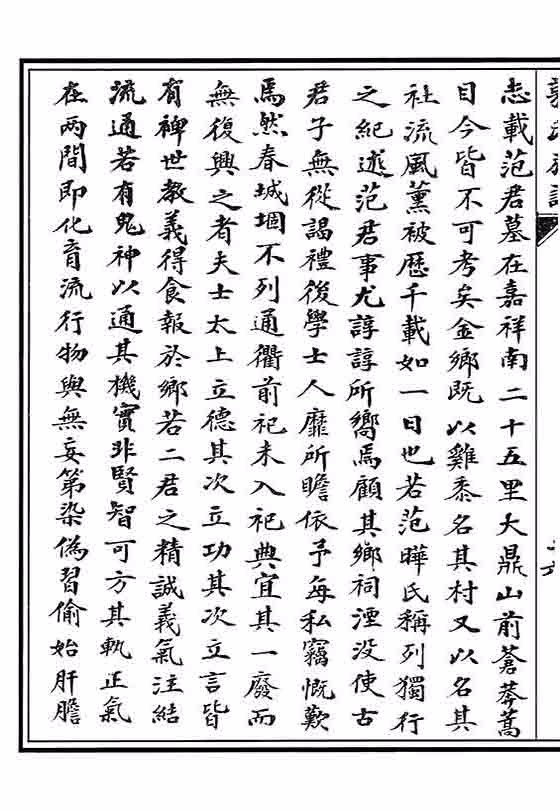 志載范君墓在嘉祥南二十五里大鼎山前蒼莽蒿
目今皆不可考矣金鄉既以雞黍名其村又以名其
社流風薰被歷千載如一日也若范曄氏稱列獨行
之紀述范君事尤諄諄所嚮焉顧其鄉祠湮没使古
君子無從謁禮後學士人靡所瞻依予每私竊慨歎
焉然春城堌不列通衢前祀未入祀典宜其一廢而
無復興之者夫士太上立德其次立功其次立言皆
有裨世教義得食報於鄉若二君之精誠義氣注結
流通若有鬼神以通其機實非賢智可方其執正氣
在兩間即化育流行物與無妄第染偽習偷始肝膽